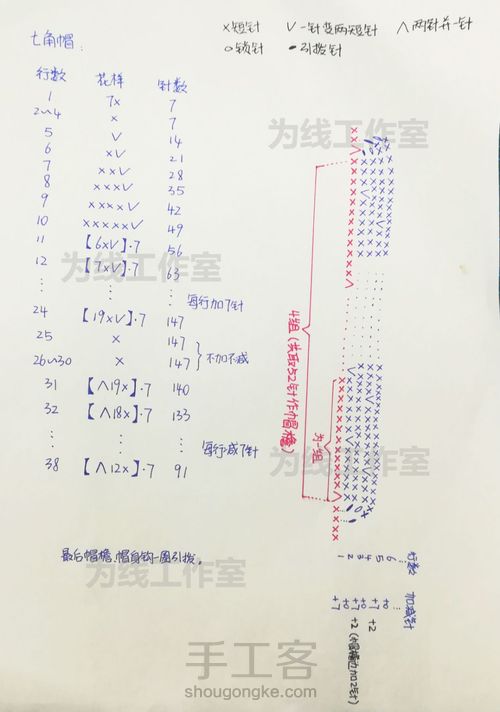 ×短针 ∨一针变两短针 ∧两针并一针
○锁针 ●引拔针
七角帽:
行数 花样 针数
1 7× 7
2~4 × 7
5 ∨ 14
6 ×∨ 21
7 ××∨ 28
8 ×××∨ 35
9 ××××∨ 42
10 ×××××∨ 49
11 【6×∨】·7 56
12 【7×∨】·7 63
⋮ ⋮ ⋮ 每行加7针
24 【19×∨】·7 147
25 × 147
26~30 × 147 不加不减
31 【∧19×】·7 140
32 【∧18×】·7 133
⋮ ⋮ ⋮ 每行减7针
38 【∧12×】·7 91
最后帽檐、帽身钩一圈引拔。
4组(共取52针作帽檐)
为一组
行数 1 2 3 4 5 6
加减针 +7 +0 +7 +0 +7 +0
+2 +2(帽檐边加2针)
为线工作室
为线工作室
为线工作室
为线工作室
手工客
shougongke.com